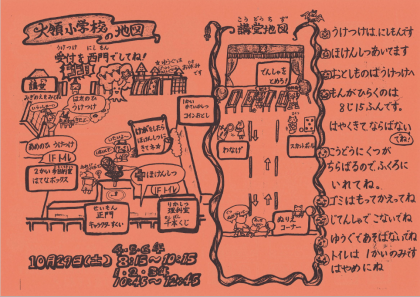 大領小学校の地図
うけつけ にしもん
受付を西門でしてね!
講堂
はれの日
うけつけ
あめのひ うけつけ
1F トイレ
はてなボックス
けがをしたら
ほけんしつに
きてネ
ほけんしつ
1F トイレ
せいもん
正門
キャラクターすくい
コインおとし
りかしつ
理科室
千本くじ
10月29日(土)
4・5・6年
8:15〜10:15
1・2・3年
10:45〜12:45
こうどうちず
講堂地図
でんしゃを
とめろ!
わなげ
スカットボール
ぬりえ
コーナー
うけつけは、にしもんです
ほけんしつあいてます
おとしものはうけつけへ
もんがひらくのは
8じ15ふんです。
はやくきてならばない
でね!
こうどうにくつが
ちらばるので、ふくろに
いれてね。
ゴミはもってかえってね
じてんしゃで こないでね
ゆうぐであそばないでね
トイレは 1かいのみです
はやめにね